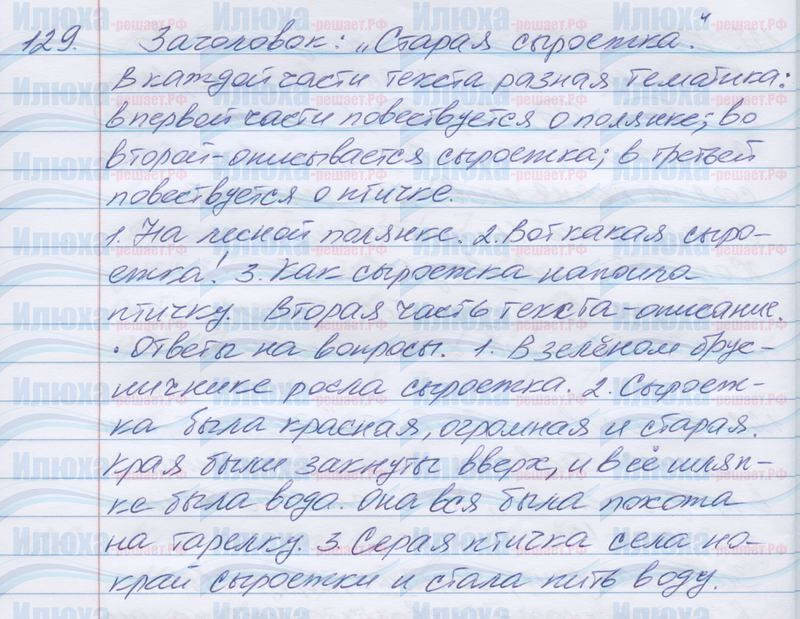 129. Заголовок: „Старая сыроежка."
В каждой части текста разная тематика:
в первой части повествуется о полянке; во
второй - описывается сыроежка; в третьей
повествуется о птичке.
1. На лесной полянке. 2. Вот какая сыро-
ежка! 3. Как сыроежка напоила
птичку. Вторая часть текста - описание.
• Ответы на вопросы. 1. В зелёном брус-
ничнике росла сыроежка. 2. Сыроеж-
ка была красная, огромная и старая.
Края были загнуты вверх, и в её шляп-
ке была вода. Она вся была похожа
на тарелку. 3. Серая птичка села на
край сыроежки и стала пить воду.
Илюха-решает.РФ